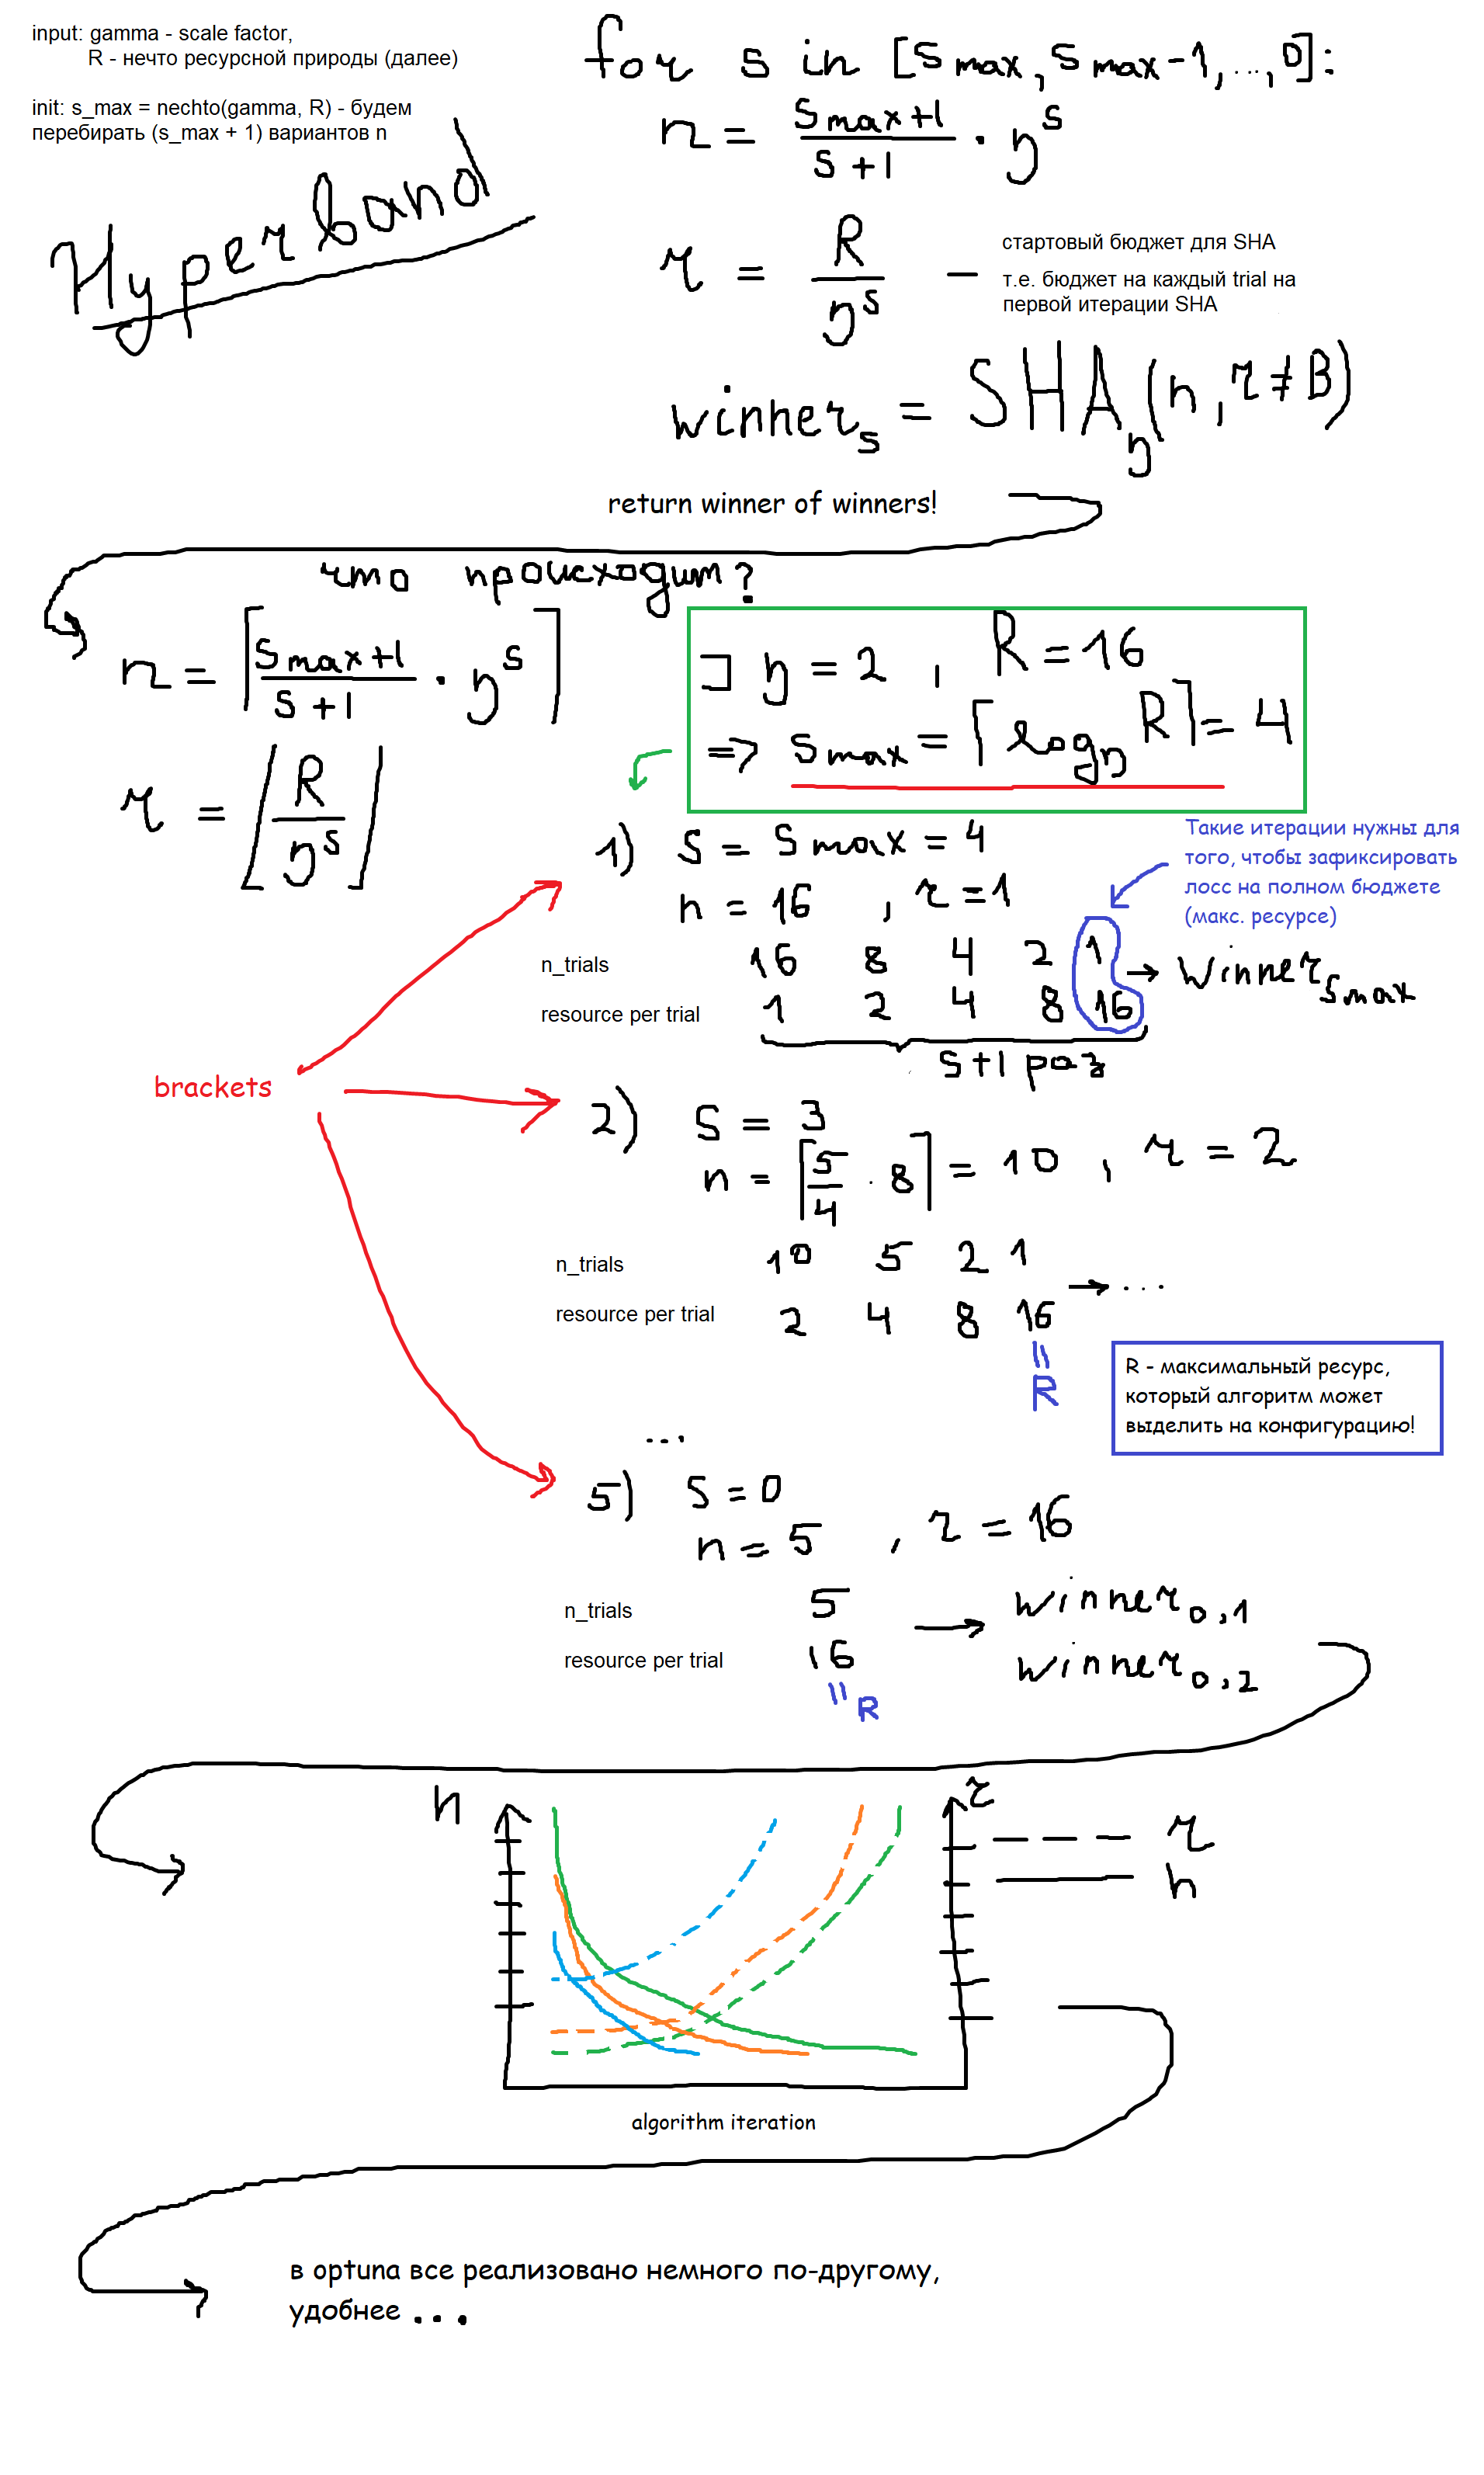 input: gamma - scale factor,
R - нечто ресурсной природы (далее)
init: s_max = nechto(gamma, R) - будем
перебирать (s_max + 1) вариантов n
Hyperband
for s in [s max, s max-1, ..., 0]:
n = (s max+1)/(s+1) · η^s
r = R/η^s —
стартовый бюджет для SHA
т.е. бюджет на каждый trial на
первой итерации SHA
winner_s = SHA_η(n, r ≠ B)
return winner of winners!
что происходит?
n = ⌈(s max+1)/(s+1) · η^s⌉
r = ⌊R/η^s⌋
⊐ η = 2, R = 16
⇒ s max = ⌈log_η R⌉ = 4
1) s = s max = 4
n = 16, r = 1
Такие итерации нужны для
того, чтобы зафиксировать
лосс на полном бюджете
(макс. ресурсе)
n_trials 16 8 4 2 1
resource per trial 1 2 4 8 16
→ winner_s max
s+1 раз
brackets
2) s = 3
n = ⌈5/4 · 8⌉ = 10, r = 2
n_trials 10 5 2 1
resource per trial 2 4 8 16
→ ...
= R
R - максимальный ресурс,
который алгоритм может
выделить на конфигурацию!
...
5) s = 0
n = 5, r = 16
n_trials 5
resource per trial 16
= R
→ winner_0,1
winner_0,2
n
r
r
n
algorithm iteration
в optuna все реализовано немного по-другому,
удобнее ...